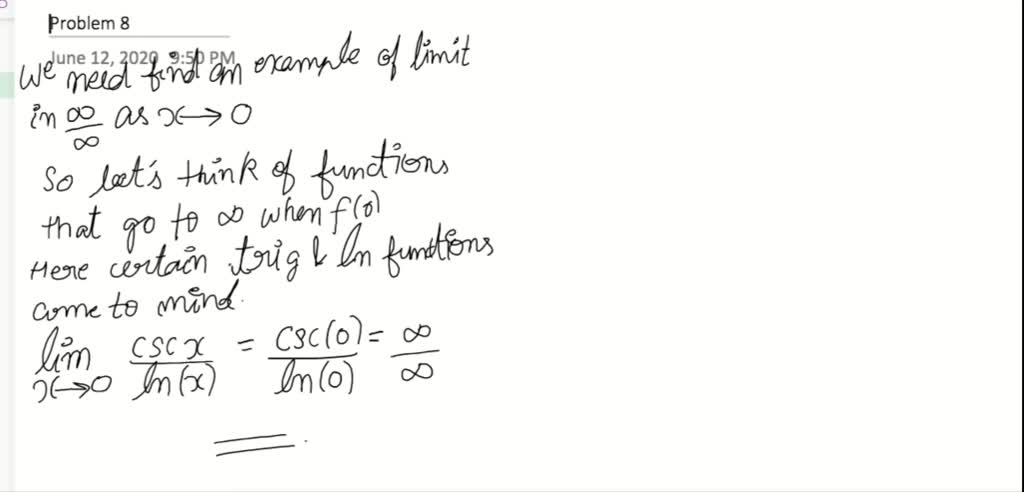 Problem 8
June 12, 2020 9:50 PM
We need find an example of limit
in ∞/∞ as x→0
So leet's think of functions
that go to ∞ when f(0)
Here certain trig & ln functions
come to mind.
lim x→0 csc x / ln(x) = csc(0) / ln(0) = ∞/∞